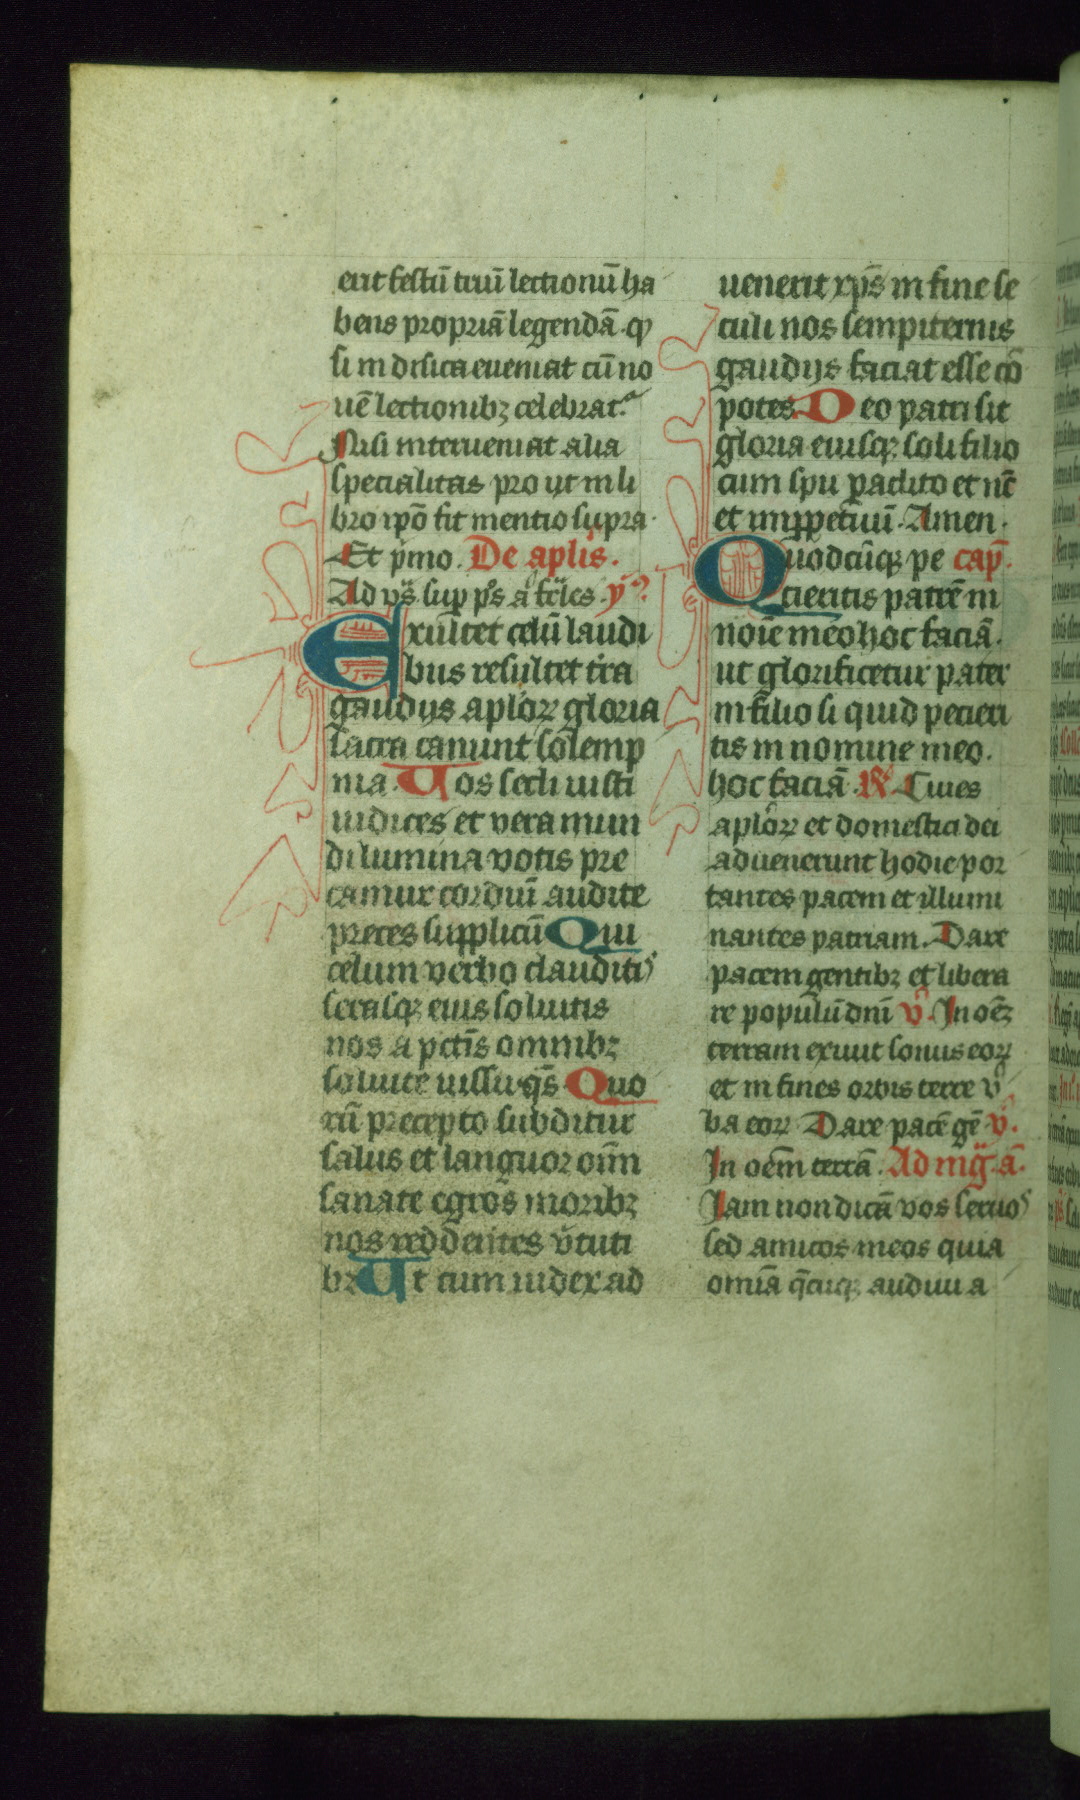 erit festū triū lectionū ha
bens propriā legendā. qꝫ
si in dn̄ica eueniat cū no
uē lectionibꝫ celebrat᷑.
Nisi interueniat alia
specialitas pro ut in li
bro ip̄o fit mentio supra.
Et p̄mo. De apl̄is.
Ad vs̄. sup ps̄ a fēles. ymꝰ
Exultet celū laudi
bus resultet t̄ra
gaudijs aplōꝝ gloria
sacra canunt solemp
nia. Uos secli iusti
iudices et vera mun
di lumina votis pre
camur cordiū audite
preces supplicū Qui
celum verbo clauditis
serasqꝫ eius soluitis
nos a pctīs omnibꝫ
soluite iussu qs̄ Quo
rū precepto subditur
salus et languor oīm
sanate egros moribꝫ
nos reddentes v̄tuti
bꝫ Ut cum iudex ad
uenerit xp̄s in fine se
culi nos sempiternis
gaudijs faciat esse cō
potes. Deo patri sit
gloria eiusqꝫ soli filio
cum spū paclito et nūc
et imppetuū. Amen.
Quodcūqꝫ pe cap̄.
tieritis patrē in
noīe meo hoc faciā.
ut glorificetur pater
in filio si quid petieri
tis in nomine meo.
hoc faciā. R̄ Ciues
aplōꝝ et domestici dei
aduenerunt hodie por
tantes pacem et illumi
nantes patriam. Dare
pacem gentibꝫ et libera
re populū dn̄i v̄. In oēꝫ
terram exiuit sonus eoꝝ
et in fines orbis terre v̄
ba eoꝝ Dare pacē gē v̄.
In oēm terrā. Ad mḡ. ā.
Iam non dicā vos seruos
sed amicos meos quia
omīa q̄cūqꝫ audiui a